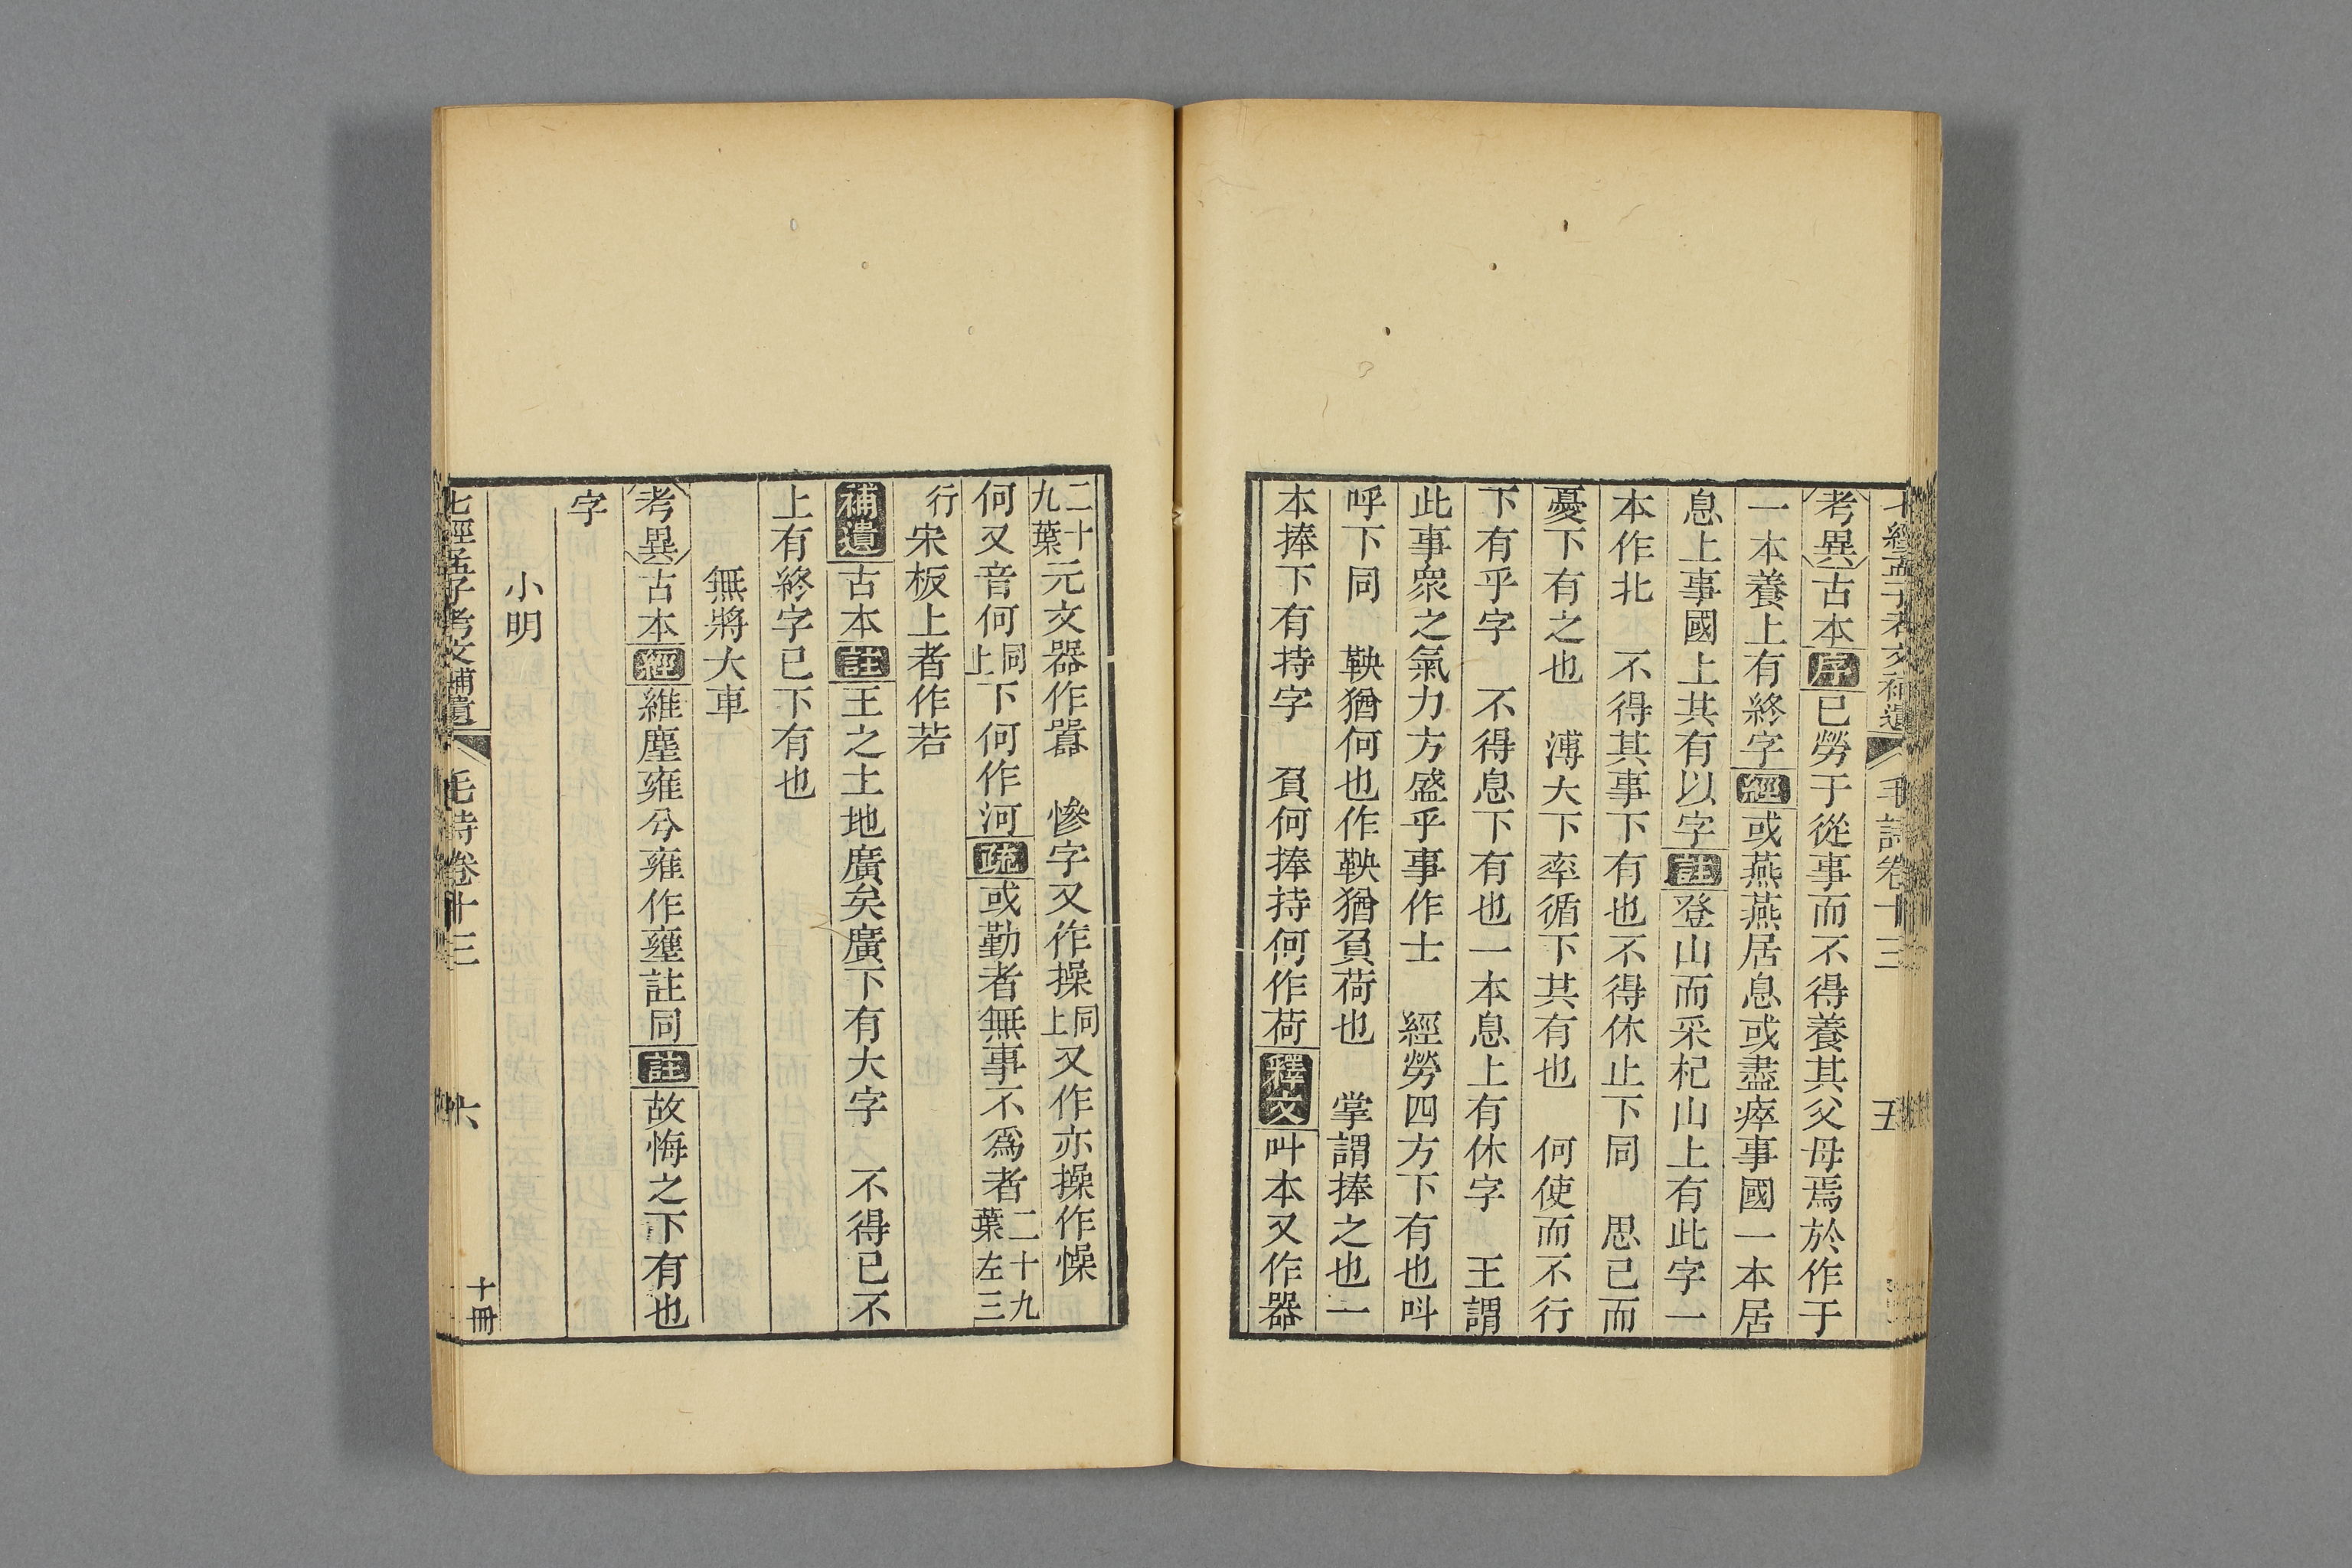 七經孟子考文補遺 毛詩卷十三 五
考異古本序已勞于從事而不得養其父母焉於作于
一本養上有終字經或燕燕居息或盡瘁事國一本居
息上事國上共有以字註登山而采杞山上有此字一
本作北 不得其事下有也不得休止下同 思已而
憂下有之也 溥大下率循下共有也 何使而不行
下有乎字 不得息下有也一本息上有休字 王謂
此事衆之氣力方盛乎事作士 經勞四方下有也叫
呼下同 鞅猶何也作鞅猶負荷也 掌謂捧之也一
本捧下有持字 負何捧持何作荷釋文叫本又作器
二十九葉元文器作嚻 慘字又作操同上又作亦操作懆
何又音何同上下何作河疏或勤者無事不爲者二十九葉左三
行宋板上者作若
補遺古本註王之土地廣矣廣下有大字 不得已不
上有終字已下有也
無將大車
考異古本經維塵雍兮雍作壅註同註故悔之下有也
字
小明
七經孟子考文補遺 毛詩卷十三 六 十冊